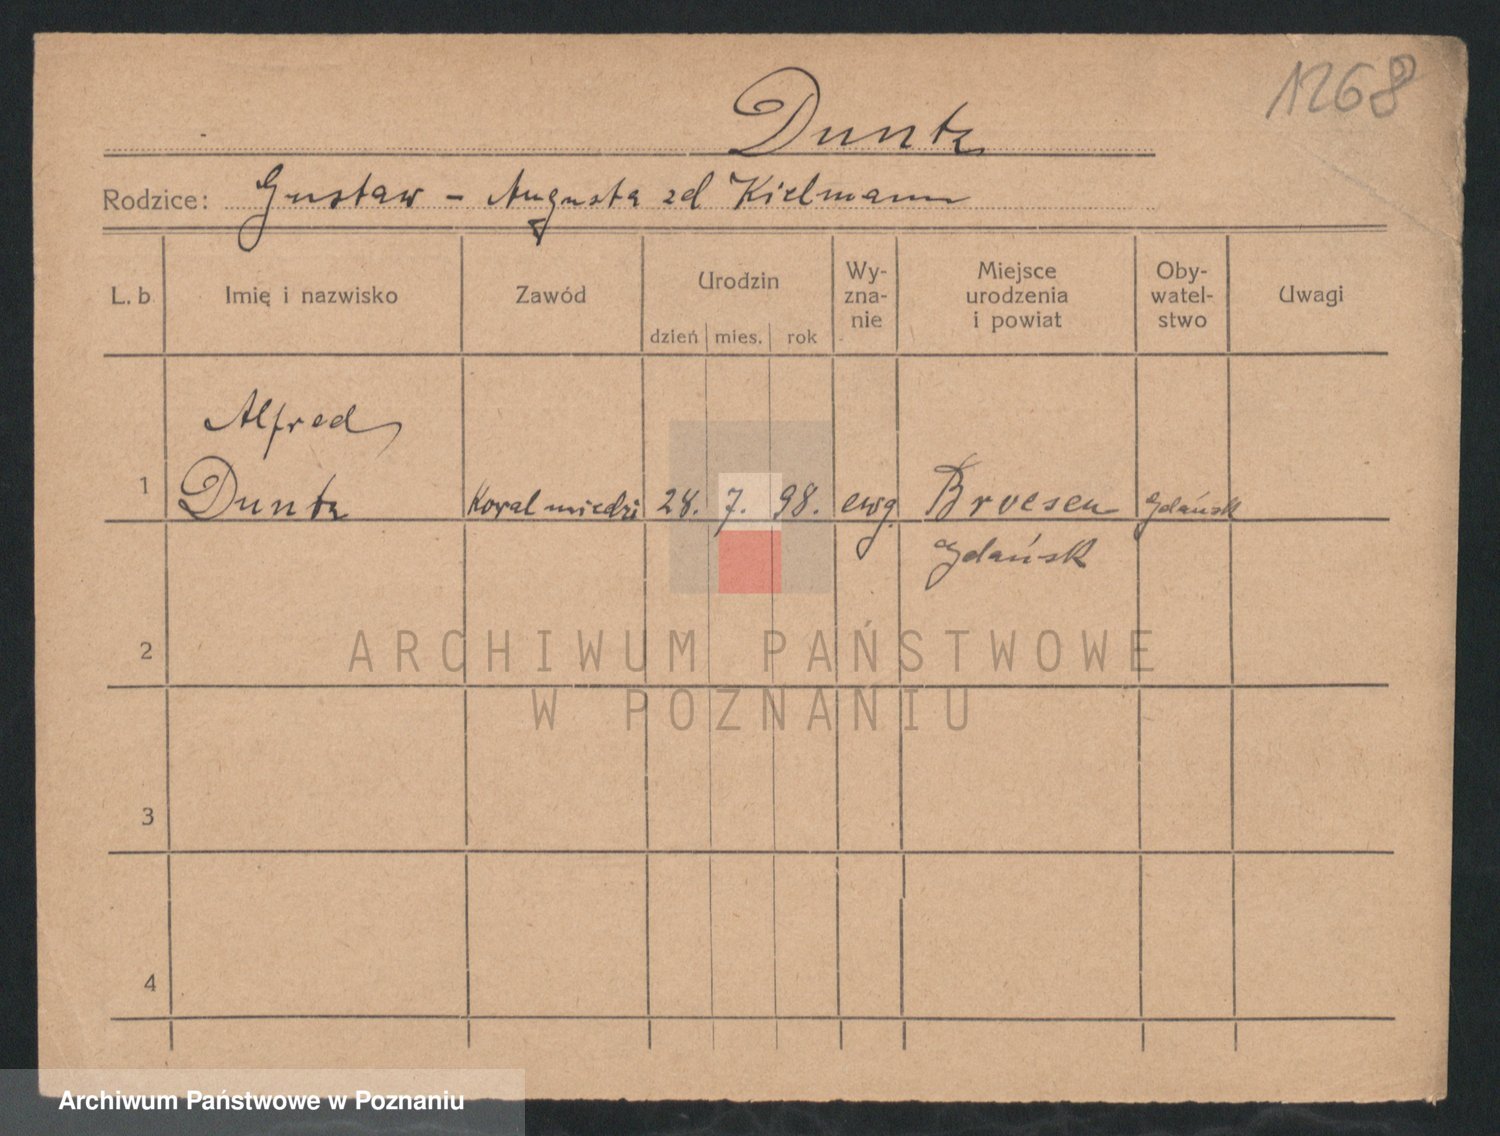 1268
Duntz
Rodzice: Gustaw - Augusta zd Kielmann
L. b
Imię i nazwisko
Zawód
Urodzin
dzień mies. rok
Wy-
zna-
nie
Miejsce
urodzenia
i powiat
Oby-
watel-
stwo
Uwagi
Alfred
1 Duntz Kowal miedzi 28. 7. 98. ewg. Broesen Gdańsk
Gdańsk
2
ARCHIWUM PAŃSTWOWE
W POZNANIU
3
4
Archiwum Państwowe w Poznaniu